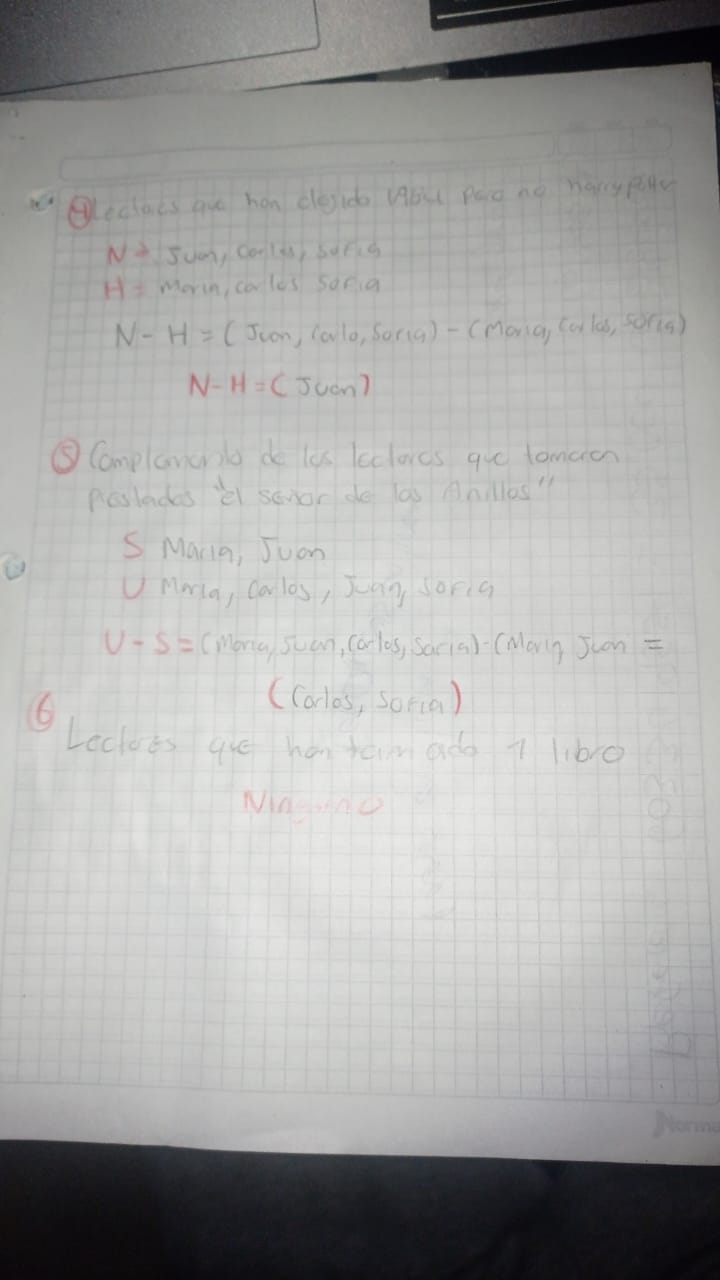 ④ Lectores que han elejido pero no harry potter
N = Juan, Carlos, Sofia
H = Maria, carlos Sofia
N - H = ( Juan, Carlo, Soria) - (Maria, Carlos, Sofia)
N-H = ( Juan)
⑤ Complemento de los lectores que tomaron
Prestados "el señor de los Anillos"
S Maria, Juan
U Maria, Carlos, Juan, Sofia
U - S = (Maria, Juan, Carlos, Saria) - (Maria Juan =
(Carlos, Sofia)
⑥
Lectores que han tomado 1 libro
Ninguno
Norma